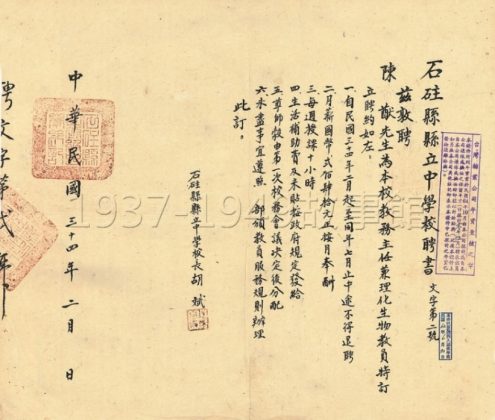 石砫縣縣立中學校聘書 文字第二號
茲敦聘
陳 猷先生為本校教務主任兼理化生物教員特訂
立聘約如左
一自民國三十四年二月起至同年七月止中途不得退聘
二月薪國幣弍佰肆拾元正按月奉酬
三每週授課十小時
四生活補助費及米貼按政府規定發給
五尊師穀由第一次校務會議決定後分配
六未盡事宜遵照 部頒教員服務規則辦理
此訂
石砫縣縣立中學校長胡 斌
中華民國三十四年二月 日
聘文字第弍號
1937-1945故事館